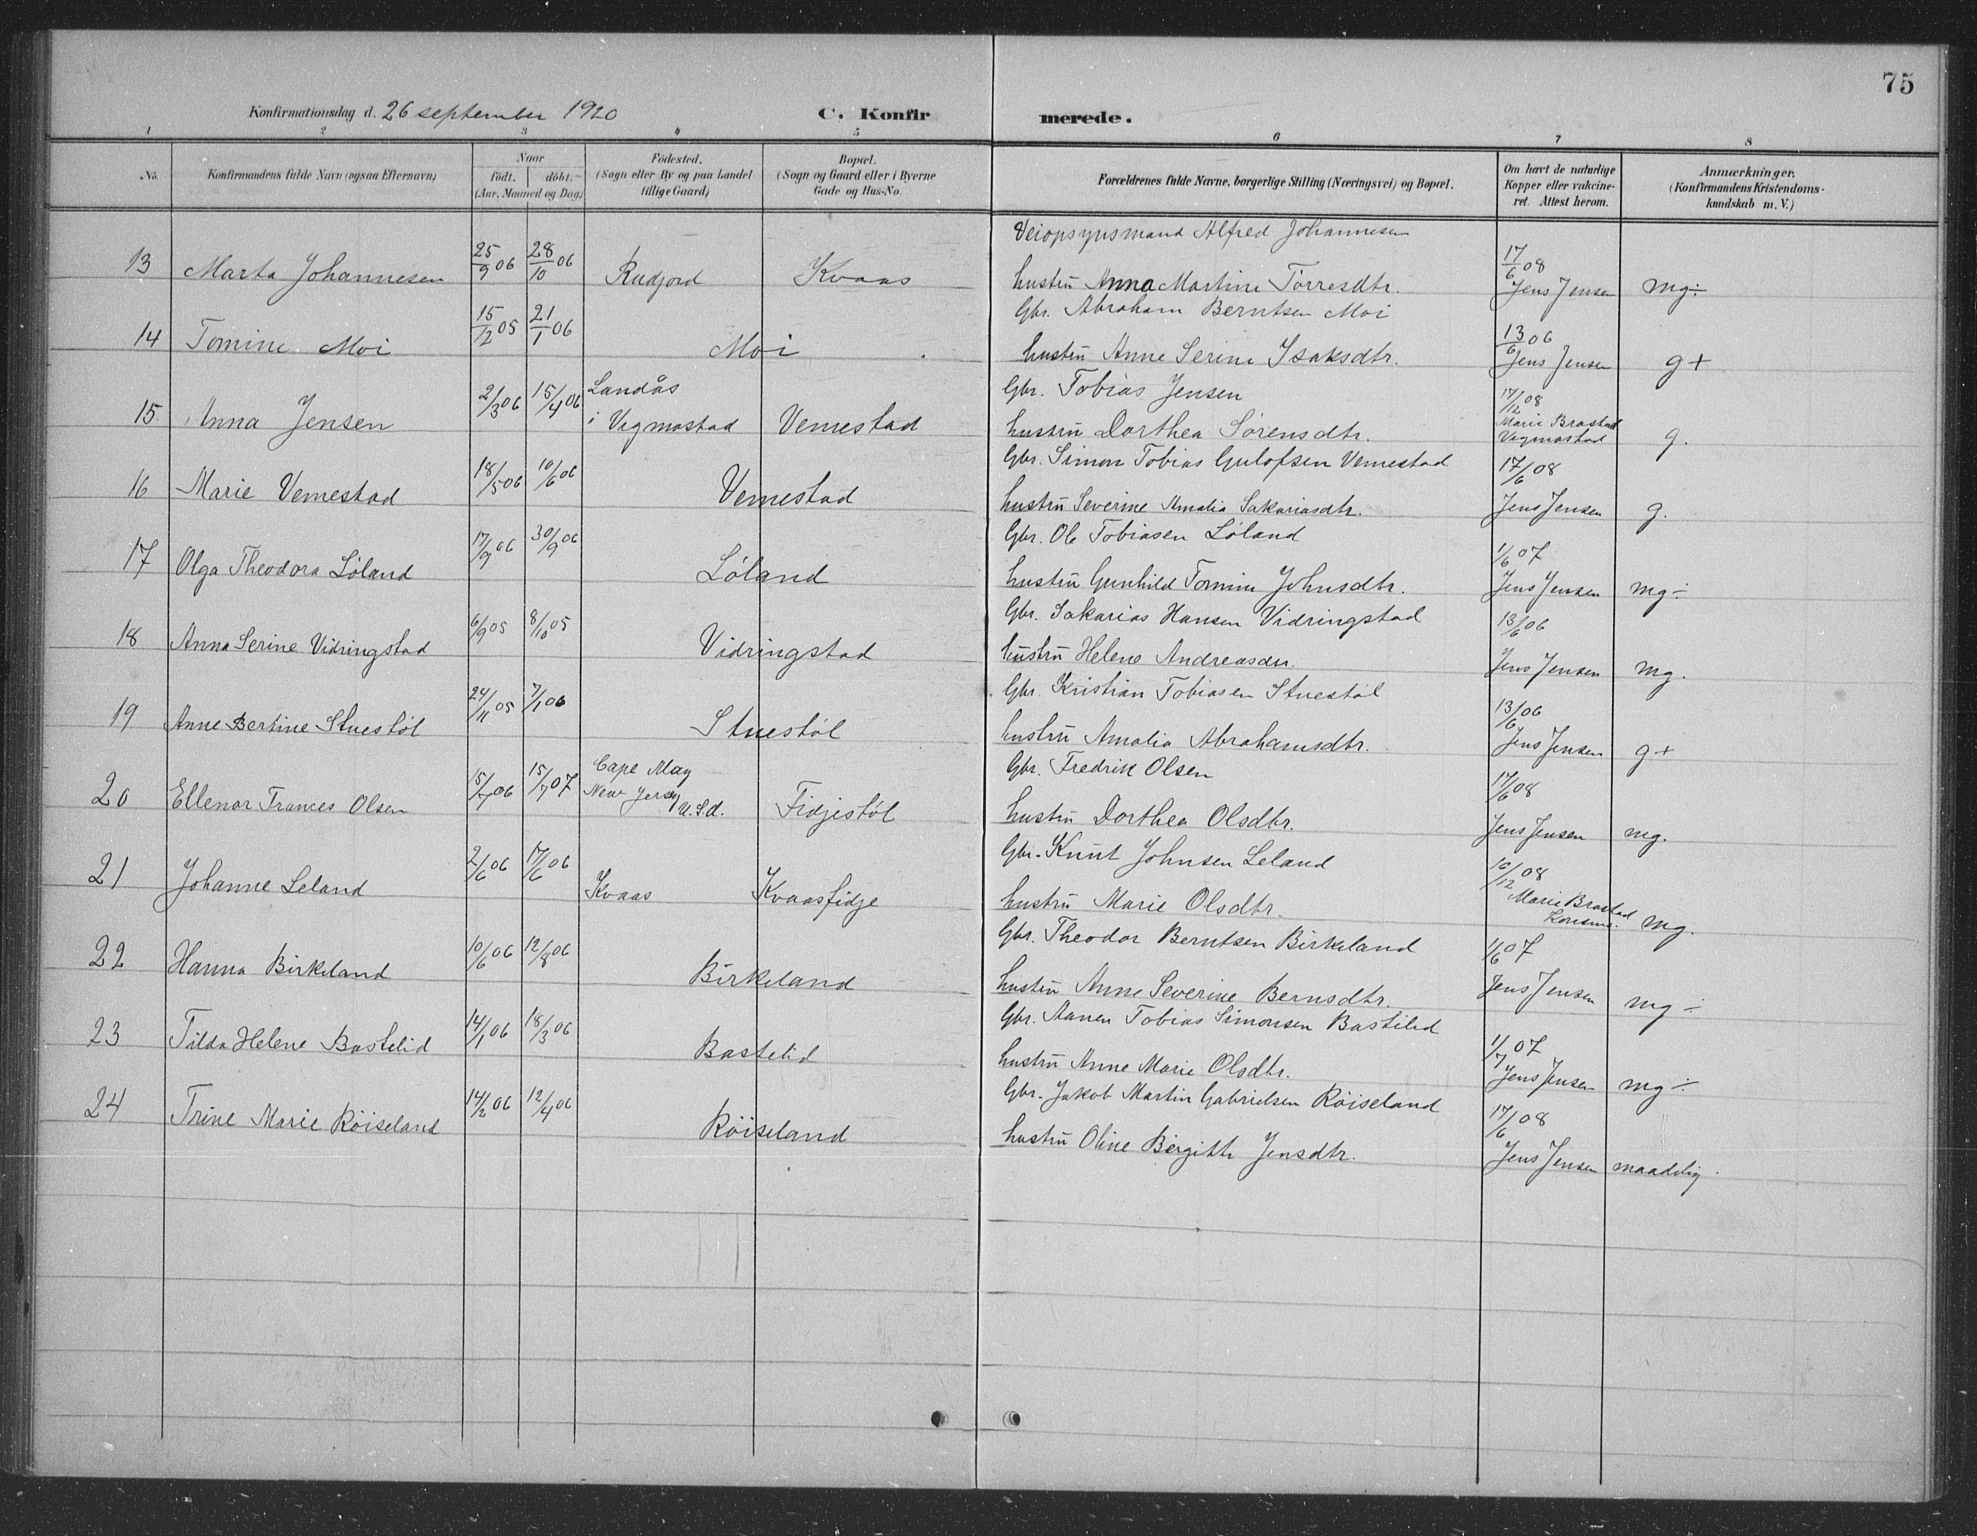 75
Konfirmationsdag d. 26 september 1920 C. Konfirmerede.
1 2 3 4 5 6 7 8
No. Konfirmandens fulde Navn (ogsaa Efternavn) Naar født. døbt. (Aar, Maaned og Dag) Fødested. (Sogn eller By og paa Landet tillige Gaard) Bopæl. (Sogn og Gaard eller i Byerne Gade og Hus-No. Forældrenes fulde Navne, borgerlige Stilling (Næringsvei) og Bopæl. Om havt de naturlige Kopper eller vakcineret. Attest herom. Anmærkninger. (Konfirmandens Kristendomskundskab m. V.)
Veiopsynsmand Alfred Johannesen
13 Marta Johannesen 25/9 06 28/10 06 Rudjord Kvaas hustru Anna Martine Torresdtr. 17/6 08 Jens Jensen mg÷
Gbr. Abraham Berntsen Moi
14 Tomine Moi 15/12 05 21/1 06 Moi hustru Anne Serine Isaksdtr. 13/6 06 Jens Jensen g+
Gbr. Tobias Jensen
15. Anna Jensen 2/3 06 15/4 06 Landås i Vigmostad Vemestad hustru Dorthea Sørensdtr. 17/12 08 Marie Brastad Vigmostad g.
Gbr. Simon Tobias Gulofsen Vemestad
16 Marie Vemestad 18/5 06 10/6 06 Vemestad hustru Severine Amalia Sakariasdtr. 17/6 08 Jens Jensen g.
Gbr. Ole Tobiasen Løland
17 Olga Theodora Løland 17/9 06 30/9 06 Løland hustru Gunhild Tomine Johnsdtr. 1/6 07 Jens Jensen mg÷
Gbr. Sakarias Hansen Vidringstad
18 Anna Serine Vidringstad 6/9 05 8/10 05 Vidringstad hustru Helene Andreasdtr. 13/6 06 Jens Jensen mg.
Gbr. Kristian Tobiasen Stuestøl
19 Anne Bertine Stuestøl 24/11 05 7/1 06 Stuestøl hustru Amalia Abrahamsdtr. 13/6 06 Jens Jensen g+
Gbr. Fredrik Olsen
20 Ellenor Frances Olsen 15/7 06 15/7 07 Cape May New Jersey U.S.A. Fidjestøl hustru Dorthea Olsdtr. 17/6 08 Jens Jensen mg.
Gbr. Knut Johnsen Leland
21 Johanne Leland 2/6 06 17/6 06 Kvaas Kvaasfidje hustru Marie Olsdtr. 10/12 08 Marie Brastad mg.
Gbr. Theodor Berntsen Birkeland
22 Hanna Birkeland 10/6 06 12/8 06 Birkeland hustru Anne Severine Berntsdtr. 1/6 07 Jens Jensen mg÷
Gbr. Manen Tobias Simonsen Bastelid
23 Tilda Helene Bastelid 14/1 06 18/3 06 Bastelid hustru Anne Marie Olsdtr. 1/7 07 Jens Jensen mg÷
Gbr. Jakob Martin Gabrielsen Røiseland
24 Trine Marie Røiseland 14/2 06 12/4 06 Røiseland hustru Oline Birgitte Jensdtr. 17/6 08 Jens Jensen maadelig.